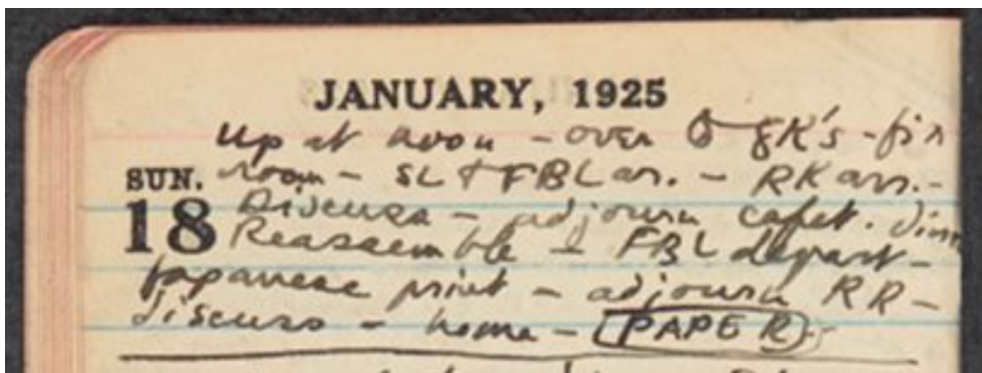 JANUARY, 1925
Up at noon - over to GK's - fix
SUN. room - SL & FBL arr. - RK arr. -
18 Discuss - adjourn cafet. dinn
Reassemble - FBL depart -
Japanese print - adjourn RR -
discuss - home - PAPER -